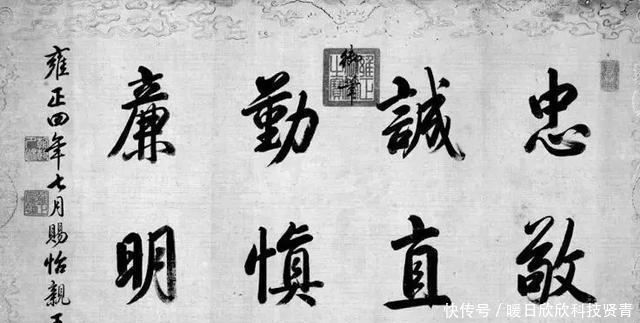 忠敬
誠直
御筆
勤慎
廉明
雍正四年七月賜怡親
快传号／暖日欣欣科技贤青